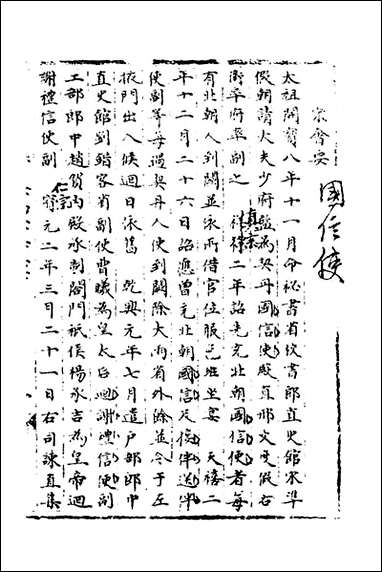 宋會要
國信使
太祖開寶八年十一月命秘書省校書郎直史館宋準
假朝請大夫少府監為契丹國信使殿直邢文度假右
衛率府率副之 真宗祥符二年詔先充北朝國信使者每
有北朝人到闕並永所借官位服色班坐宴 天禧二
年十二月二十六日詔應曾充北朝國信及接伴送伴
使副等每遇契丹人使到闕除大兩省外餘並令于左
掖門出入候迴日依舊 乾興元年七月遣戶部郎中
直史館劉鍇客省副使曹儀為皇太后迴謝禮信使副
工部郎中趙賀內殿承制閤門祇候楊承吉為皇帝迴
謝禮信使副 仁宗寶元二年三月二十一日右司諫直集